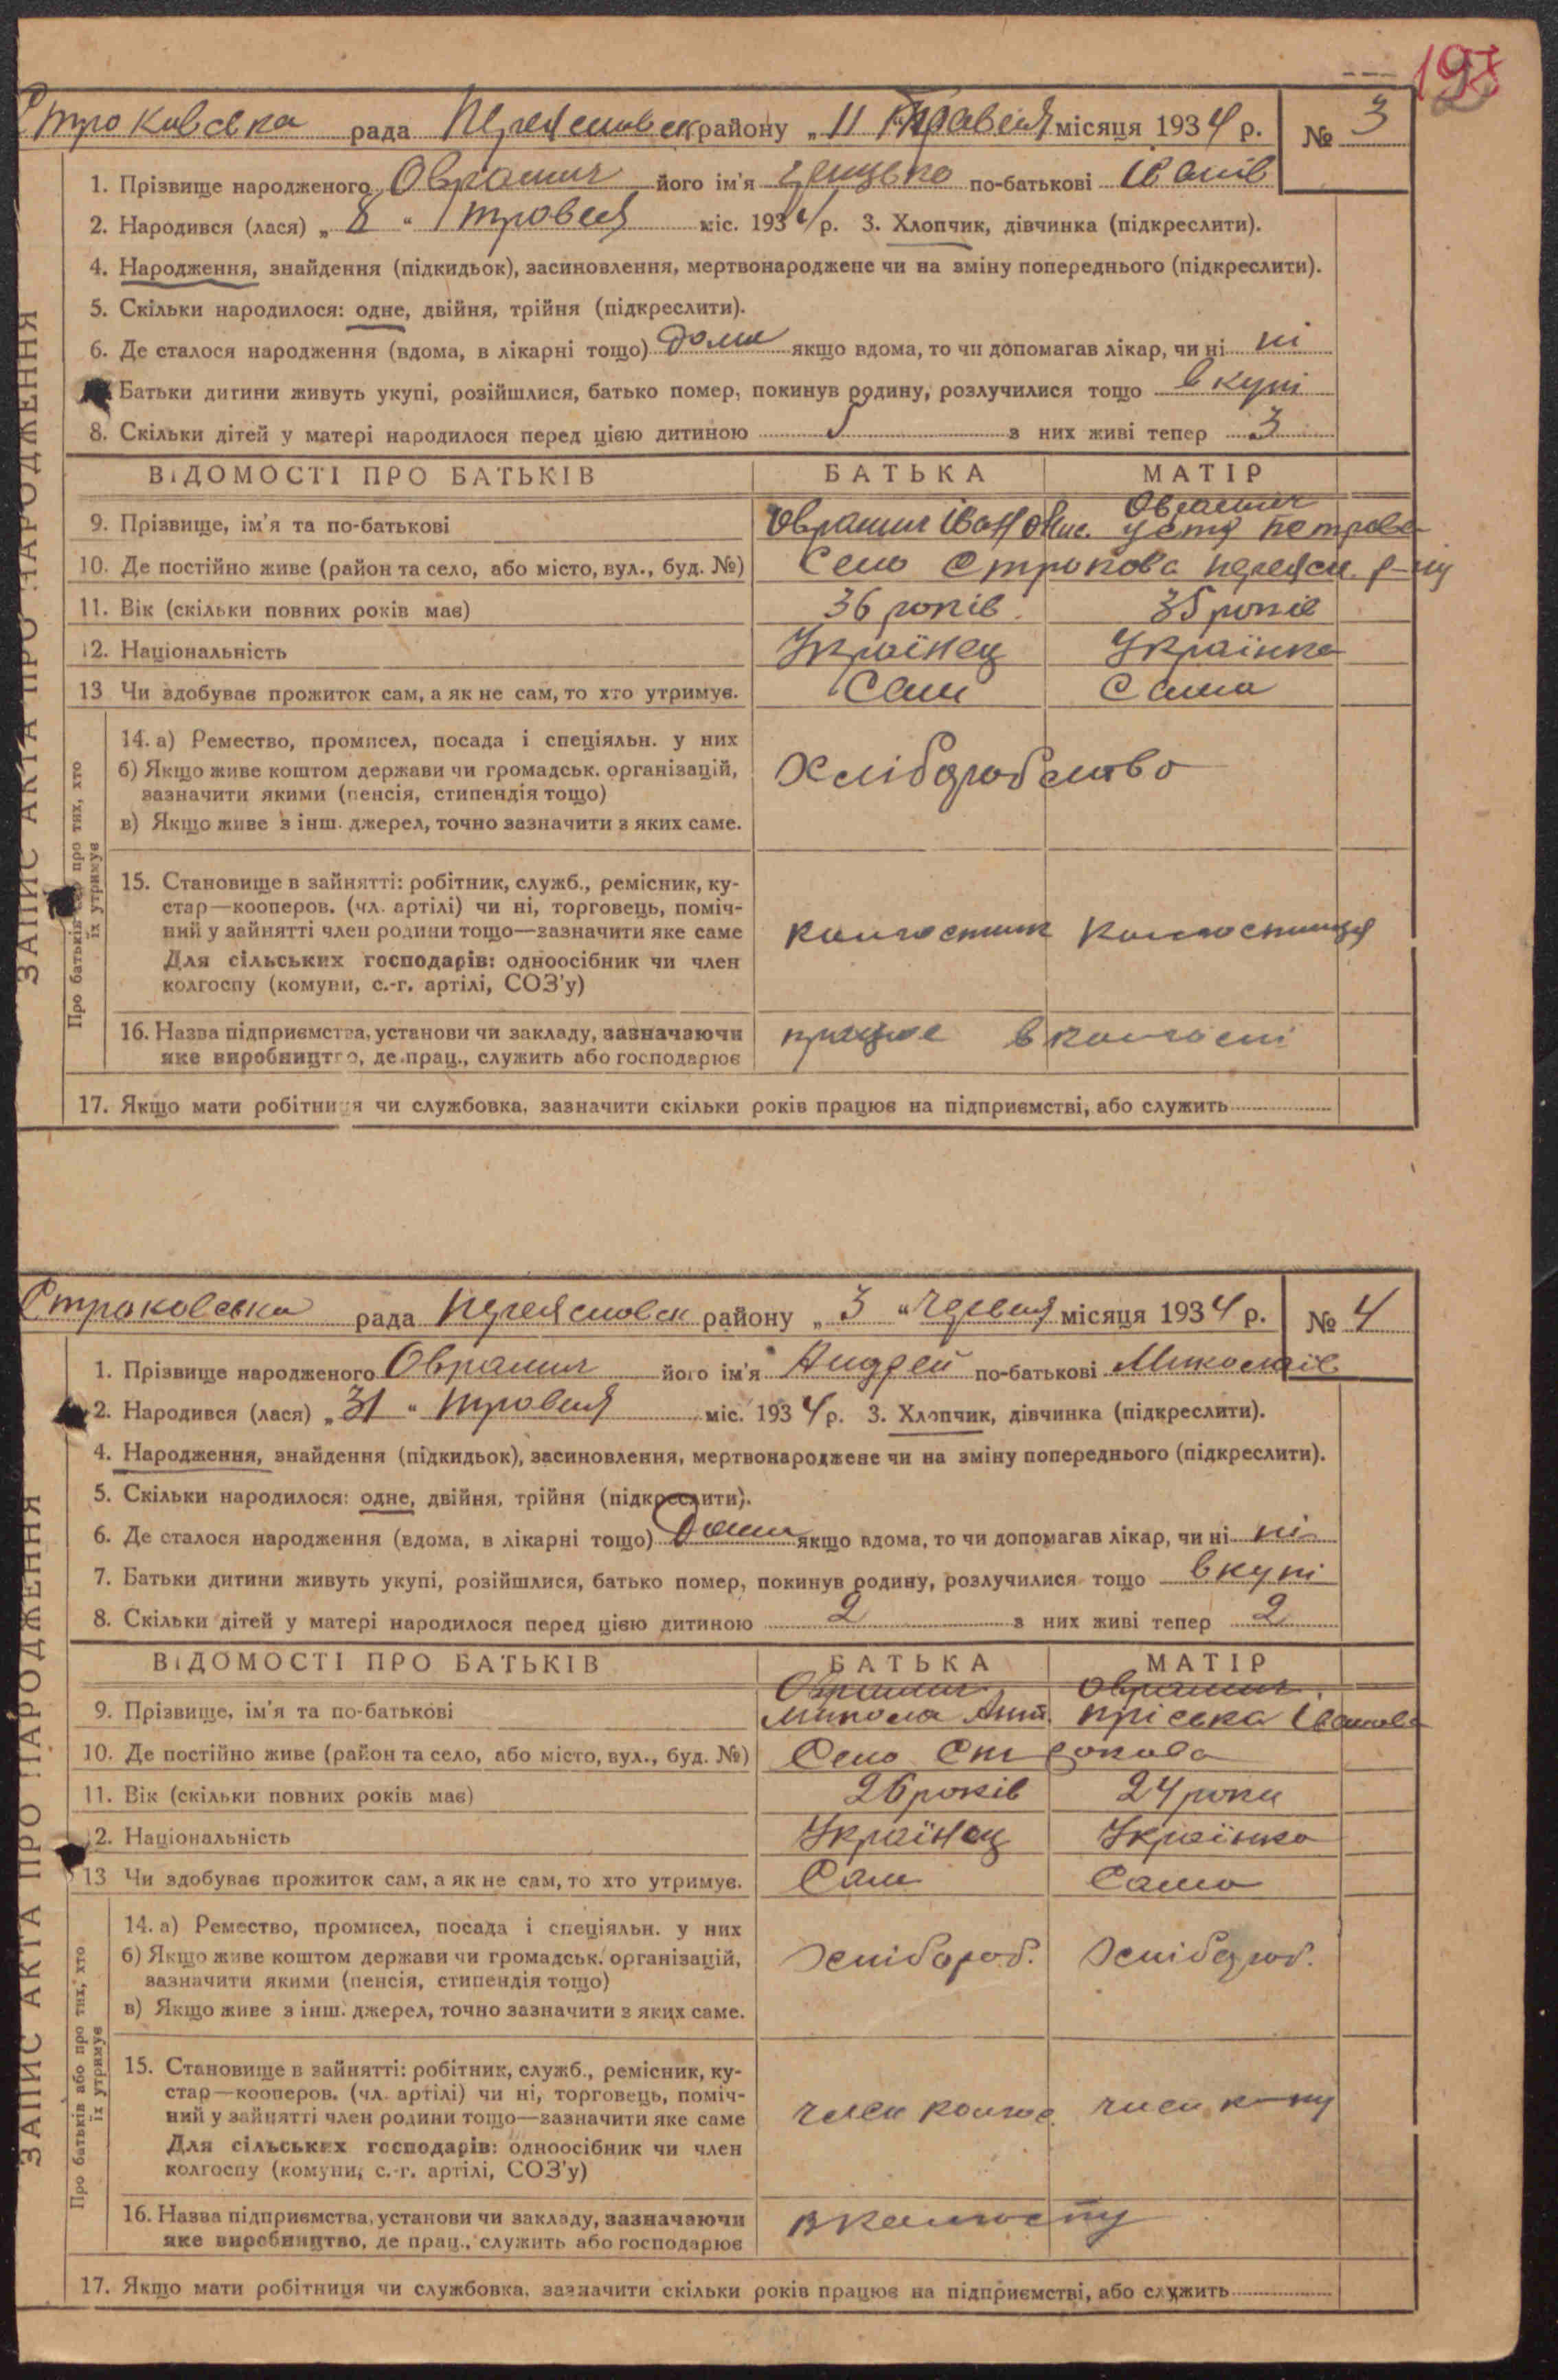 197
Строковська рада Переясловск району „ 11 " Травня місяця 1934 р. № 3
1. Прізвище народженого Оврашич його ім'я по-батькові Іванів
2. Народився (лася) „ 8 " травня міс. 1934 р. 3. Хлопчик, дівчинка (підкреслити).
4. Народження, знайдення (підкидьок), засиновлення, мертвонароджене чи на зміну попереднього (підкреслити).
5. Скільки народилося: одне, двійня, трійня (підкреслити).
6. Де сталося народження (вдома, в лікарні тощо) дома якщо вдома, то чи допомагав лікар, чи ні ні
Батьки дитини живуть укупі, розійшлися, батько помер, покинув родину, розлучилися тощо вкупі
8. Скільки дітей у матері народилося перед цією дитиною 5 з них живі тепер 3
ВІДОМОСТІ ПРО БАТЬКІВ БАТЬКА МАТІР
9. Прізвище, ім'я та по-батькові Оврашич Іван Оврашич Устя Петрова
10. Де постійно живе (район та село, або місто, вул., буд. №) Село Строкова переясл. р-ну
11. Вік (скільки повних років має) 36 років 35 років
12. Національність Українец Українка
13 Чи здобуває прожиток сам, а як не сам, то хто утримує. Сам Сама
14. а) Ремество, промисел, посада і спеціяльн. у них
б) Якщо живе коштом держави чи громадськ. організацій,
зазначити якими (пенсія, стипендія тощо)
в) Якщо живе з інш. джерел, точно зазначити з яких саме.
Хліборобство
15. Становище в зайнятті: робітник, служб., ремісник, ку-
стар—кооперов. (чл. артілі) чи ні, торговець, поміч-
ний у зайнятті член родини тощо—зазначити яке саме
Для сільських господарів: одноосібник чи член
колгоспу (комуни, с.-г. артілі, СОЗ'у)
колгоспник колгоспниця
16. Назва підприємства, установи чи закладу, зазначаючи
яке виробництво, де прац., служить або господарює
працює в колгоспі
17. Якщо мати робітниця чи службовка, зазначити скільки років працює на підприємстві, або служить
ЗАПИС АКТА ПРО НАРОДЖЕННЯ
Про батьків або про тих, хто
їх утримує
Строковська рада Переясловск району „ 3 " Червня місяця 1934 р. № 4
1. Прізвище народженого Оврашич його ім'я Андрей по-батькові Миколаїв
2. Народився (лася) „ 31 " травня міс. 1934 р. 3. Хлопчик, дівчинка (підкреслити).
4. Народження, знайдення (підкидьок), засиновлення, мертвонароджене чи на зміну попереднього (підкреслити).
5. Скільки народилося: одне, двійня, трійня (підкреслити).
6. Де сталося народження (вдома, в лікарні тощо) Дома якщо вдома, то чи допомагав лікар, чи ні ні
7. Батьки дитини живуть укупі, розійшлися, батько помер, покинув родину, розлучилися тощо вкупі
8. Скільки дітей у матері народилося перед цією дитиною 2 з них живі тепер 2
ВІДОМОСТІ ПРО БАТЬКІВ БАТЬКА МАТІР
9. Прізвище, ім'я та по-батькові Оврашич Микола Ант. Оврашич Пріська Іванова
10. Де постійно живе (район та село, або місто, вул., буд. №) Село Строкова
11. Вік (скільки повних років має) 26 років 24 роки
12. Національність Українец Українка
13 Чи здобуває прожиток сам, а як не сам, то хто утримує. Сам Сама
14. а) Ремество, промисел, посада і спеціяльн. у них
б) Якщо живе коштом держави чи громадськ. організацій,
зазначити якими (пенсія, стипендія тощо)
в) Якщо живе з інш. джерел, точно зазначити з яких саме.
Хлібороб. Хлібороб.
15. Становище в зайнятті: робітник, служб., ремісник, ку-
стар—кооперов. (чл. артілі) чи ні, торговець, поміч-
ний у зайнятті член родини тощо—зазначити яке саме
Для сільських господарів: одноосібник чи член
колгоспу (комуни, с.-г. артілі, СОЗ'у)
член колгос. член к-пу
16. Назва підприємства, установи чи закладу, зазначаючи
яке виробництво, де прац., служить або господарює
в колгоспу
17. Якщо мати робітниця чи службовка, зазначити скільки років працює на підприємстві, або служить
ЗАПИС АКТА ПРО НАРОДЖЕННЯ
Про батьків або про тих, хто
їх утримує